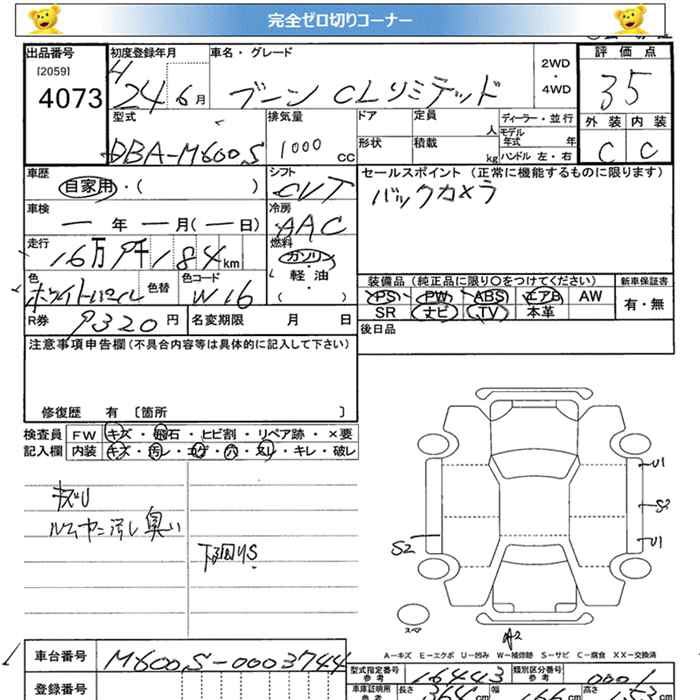 完全ゼロ切りコーナー
出品番号 初度登録年月 車名・グレード 評価点
[2059] 2WD
4073 H 24年 6月 ブーン CLリミテッド ・ 35
4WD
型式 排気量 ドア 定員 人 ディーラー・並行 外装 内装
DBA-M600S 1000 CC 形状 積載 kg モデル年式 年 C C
ハンドル 左・右
車歴 シフト セールスポイント (正常に機能するものに限ります)
自家用・( ) CVT バックカメラ
車検 冷房
一 年 一 月(一 日) AAC
走行 燃料
16万9千184km ガソリン
軽・油
( ・ )
色 色替 色コード 装備品 (純正品に限り○をつけてください) 新車保証書
ホワイトパール W16 PS PW ABS エアB AW 有・無
SR ナビ TV 本革
R券 9320円 名変期限 月 日 後日品
注意事項申告欄 (不具合内容等は具体的に記入して下さい)
修復歴 有 〔箇所 〕
検査員 FW キズ・飛石・ヒビ割・リペア跡・×要
記入欄 内装 キズ・汚レ・コゲ・穴・スレ・キレ・破レ
キズU
ルームヤニ汚し臭い
下回りS
U1
S2
U1
S2
スペア
A2
A-キズ E-エクボ U-凹み W-補修跡 S-サビ C-腐食 XX-交換済
車台番号 M600S-0003744
登録番号
型式指定番号 参考 16443 類別区分番号 参考 0001
車庫証明用 参考 長さ 364 cm 幅 166 cm 高さ 153 cm